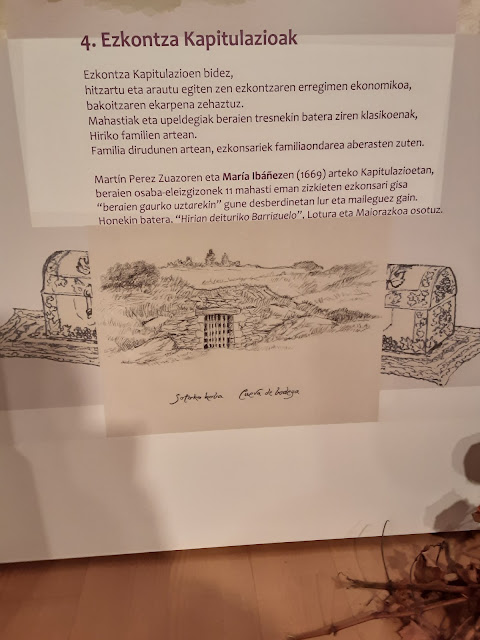 4. Ezkontza Kapitulazioak
Ezkontza Kapitulazioen bidez,
hitzartu eta arautu egiten zen ezkontzaren erregimen ekonomikoa,
bakoitzaren ekarpena zehaztuz.
Mahastiak eta upeldegiak beraien tresnekin batera ziren klasikoenak,
Hiriko familien artean.
Familia dirudunen artean, ezkonsariek familiaondarea aberasten zuten.
Martín Perez Zuazoren eta María Ibáñezen (1669) arteko Kapitulazioetan,
beraien osaba-eleizgizonek 11 mahasti eman zizkieten ezkonsari gisa
“beraien gaurko uztarekin” gune desberdinetan lur eta maileguez gain.
Honekin batera, “Hirian deituriko Barriguelo”, Lotura eta Maiorazkoa osotuz.
Cueva de bodega